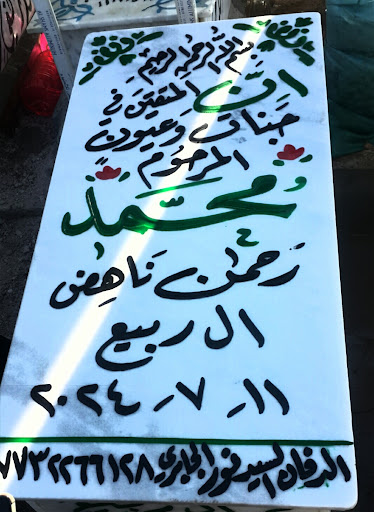 بسم الله الرحمن الرحيم
إن المتقين في
جنات وعيون
المرحوم
محمد
رحمن ناهض
ال ربيع
١١ - ٧ - ٢٠٢٤
الدفان السيد نور الجابري ٠٧٧٣٢٢٦٦١٢٨